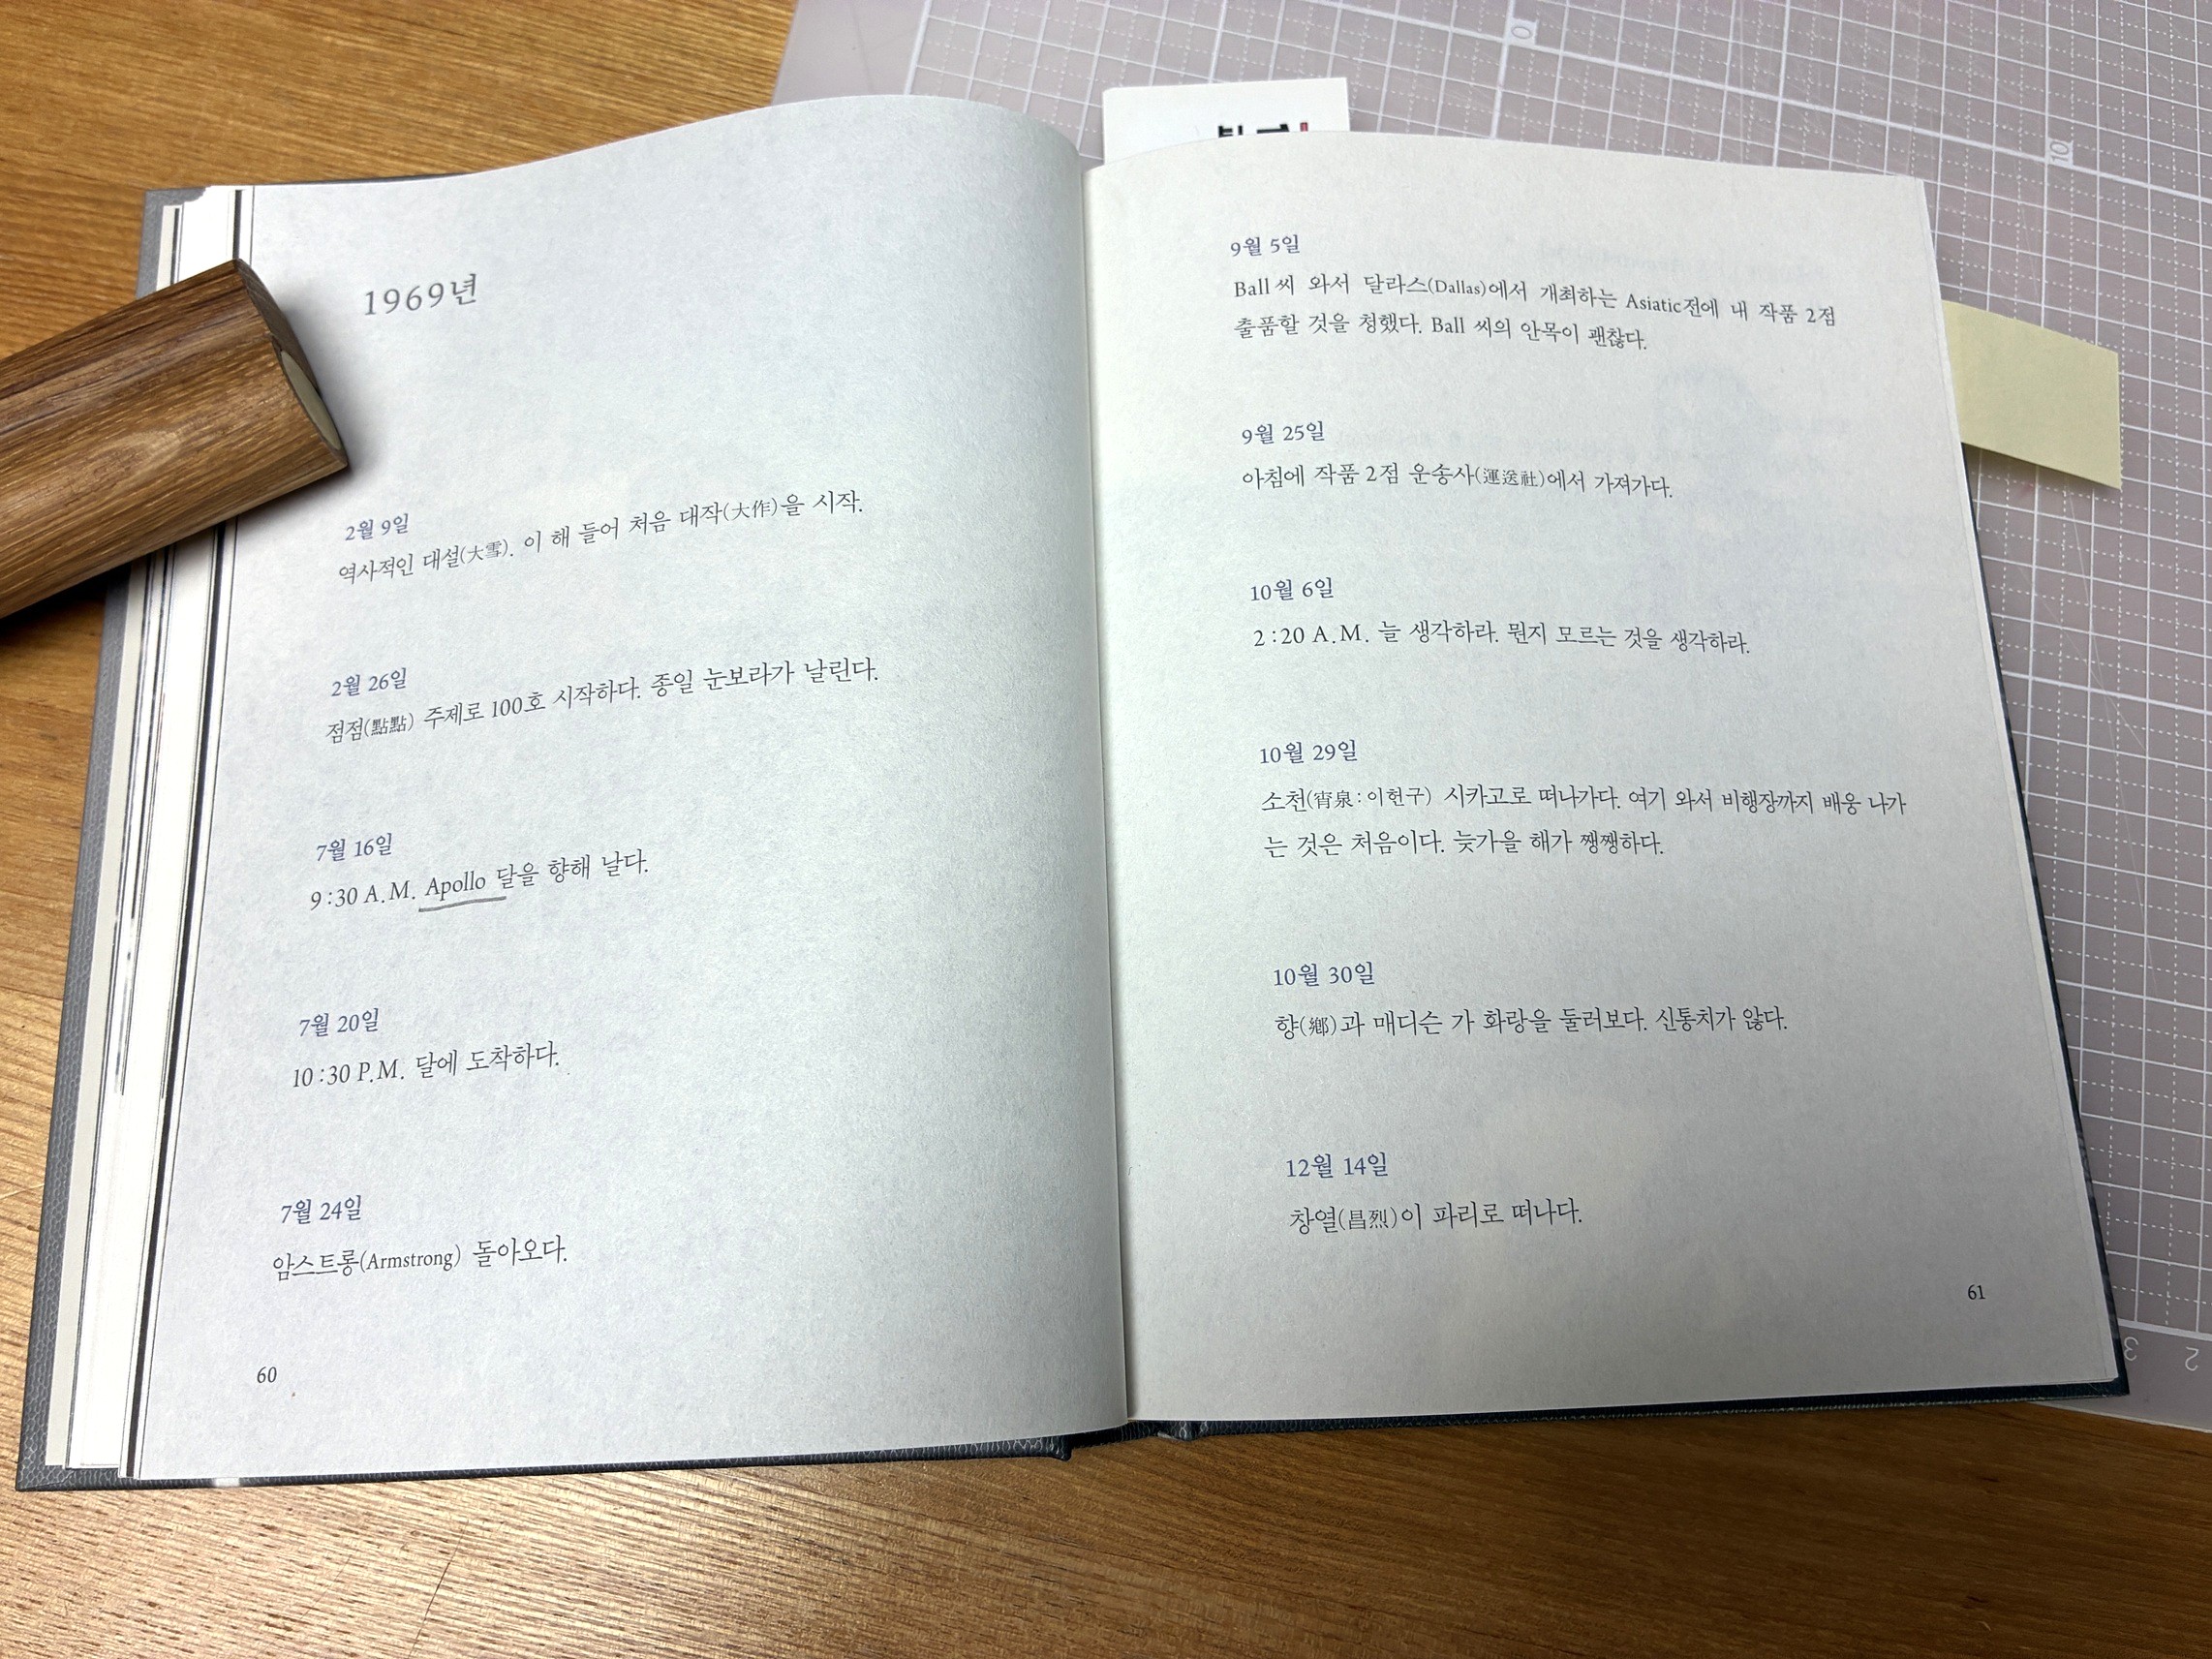 1969년
2월 9일
역사적인 대설(大雪). 이 해 들어 처음 대작(大作)을 시작.
2월 26일
점점(點點) 주제로 100호 시작하다. 종일 눈보라가 날린다.
7월 16일
9:30 A.M. Apollo 달을 향해 날다.
7월 20일
10:30 P.M. 달에 도착하다.
7월 24일
암스트롱(Armstrong) 돌아오다.
60
9월 5일
Ball 씨 와서 달라스(Dallas)에서 개최하는 Asiatic전에 내 작품 2점
출품할 것을 청했다. Ball 씨의 안목이 괜찮다.
9월 25일
아침에 작품 2점 운송사(運送社)에서 가져가다.
10월 6일
2:20 A.M. 늘 생각하라. 뭔지 모르는 것을 생각하라.
10월 29일
소천(宵泉: 이헌구) 시카고로 떠나가다. 여기 와서 비행장까지 배웅 나가
는 것은 처음이다. 늦가을 해가 쨍쨍하다.
10월 30일
향(鄕)과 매디슨 가 화랑을 둘러보다. 신통치가 않다.
12월 14일
창열(昌烈)이 파리로 떠나다.
61
10
3
2